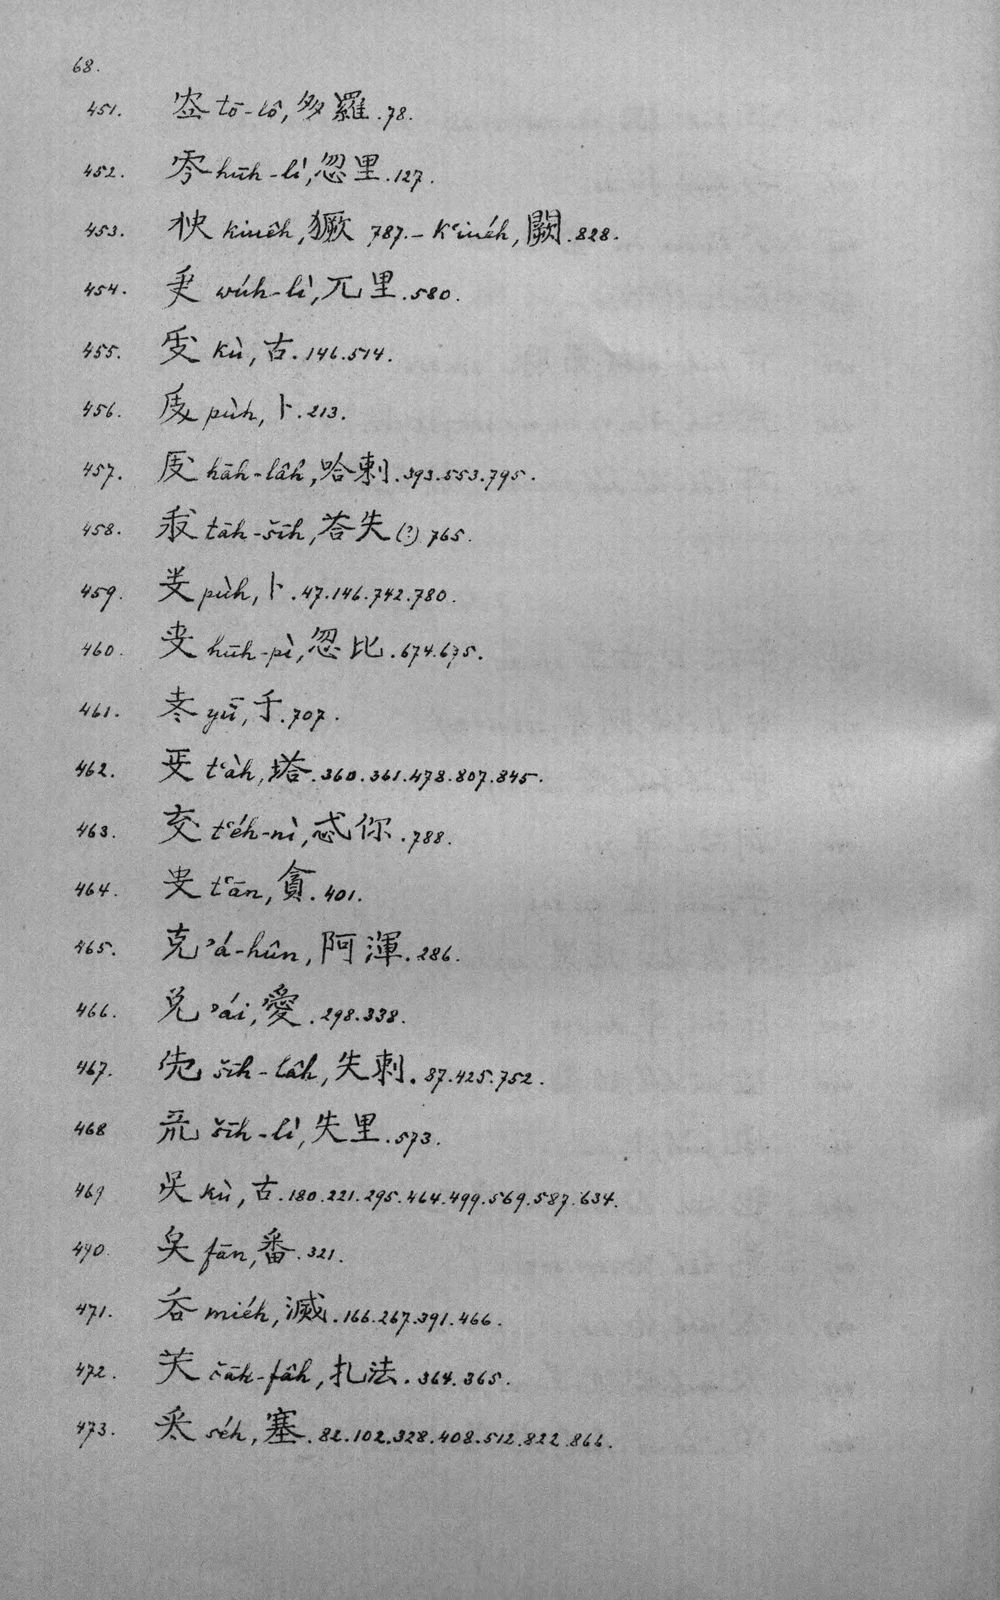 68.
451. tō-lô, 多羅.78.
452. hūh-lì, 忽里.127.
453. kiuêh, 獗 787.– K‘iuéh, 闕.828.
454. wúh-lì, 兀里.580.
455. kù, 古.146.514.
456. pùh, 卜.213.
457. hāh-lâh, 哈剌.393.553.795.
458. tāh-šīh, 荅失(?) 765.
459. pùh, 卜.47.146.742.780.
460. hūh-pì, 忽比.674.675.
461. yū, 于.707.
462. t‘àh, 塔.360.361.478.807.845.
463. t‘éh-nì, 忒你.788.
464. t‘ān, 貪.401.
465. ’á-hûn, 阿渾.286.
466. ’ái, 愛.298.338.
467. šīh-lâh, 失剌.87.425.752.
468 šīh-lì, 失里.573.
469 kù, 古.180.221.295.464.499.569.587.634.
470. fān, 番.321.
471. miéh, 滅.166.267.391.466.
472. čāh-fâh, 扎法.364.365.
473. séh, 塞.82.102.328.408.512.822.866.